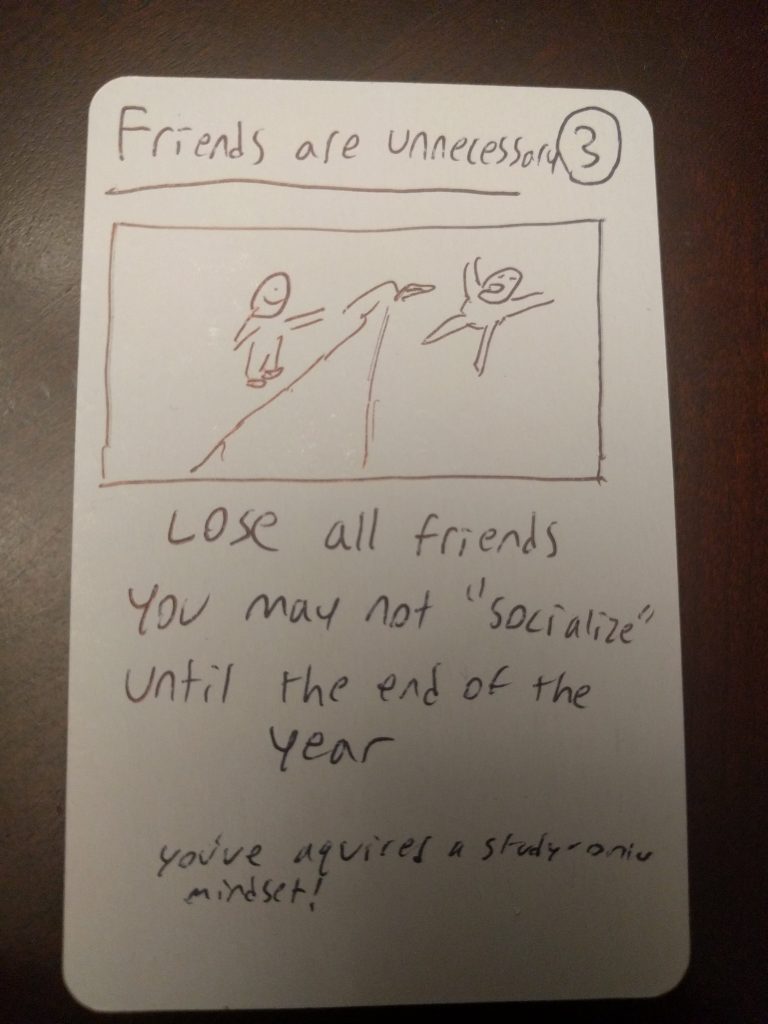 Friends are unnecessary 3
Lose all friends
You may not "socialize"
until the end of the
year
you've aquires a study-only
mindset!